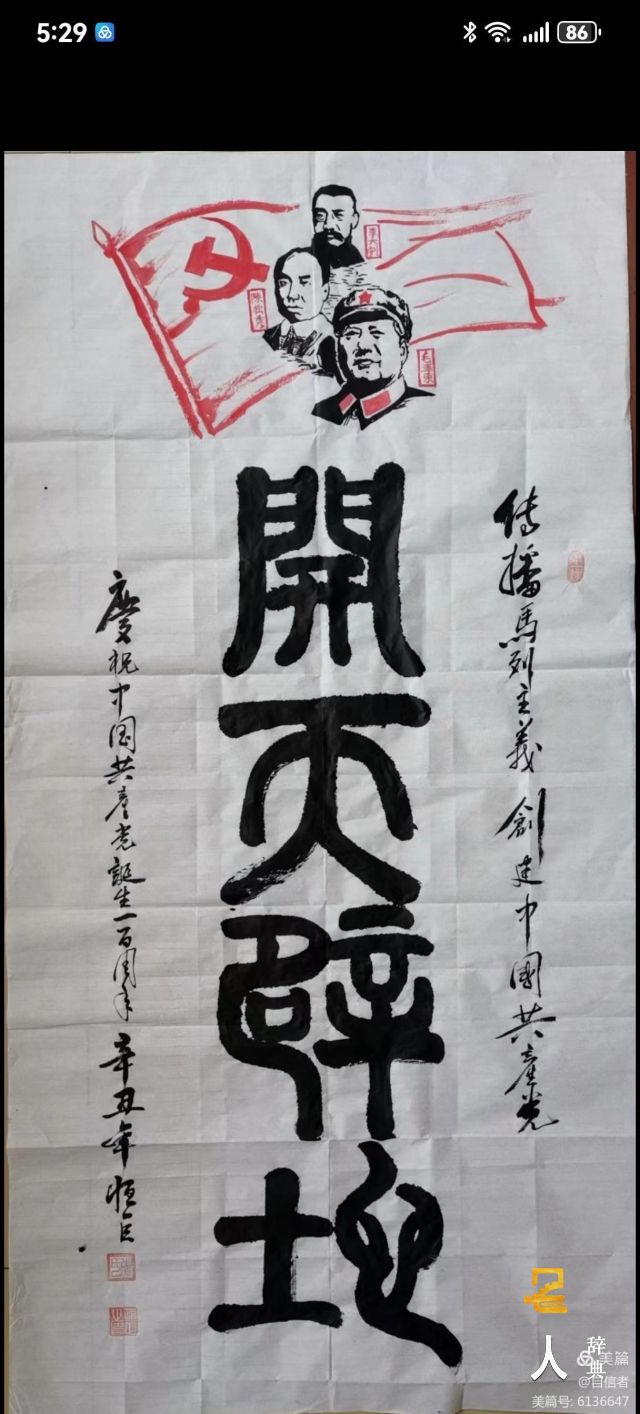 5:29
86
李大釗
陳獨秀
毛澤東
開天辟地
传播馬列主義 創建中國共產党
慶祝中国共產党誕生一百周年 辛丑年 恒臣
名
人
辞典
美篇
@自信者
美篇号: 6136647